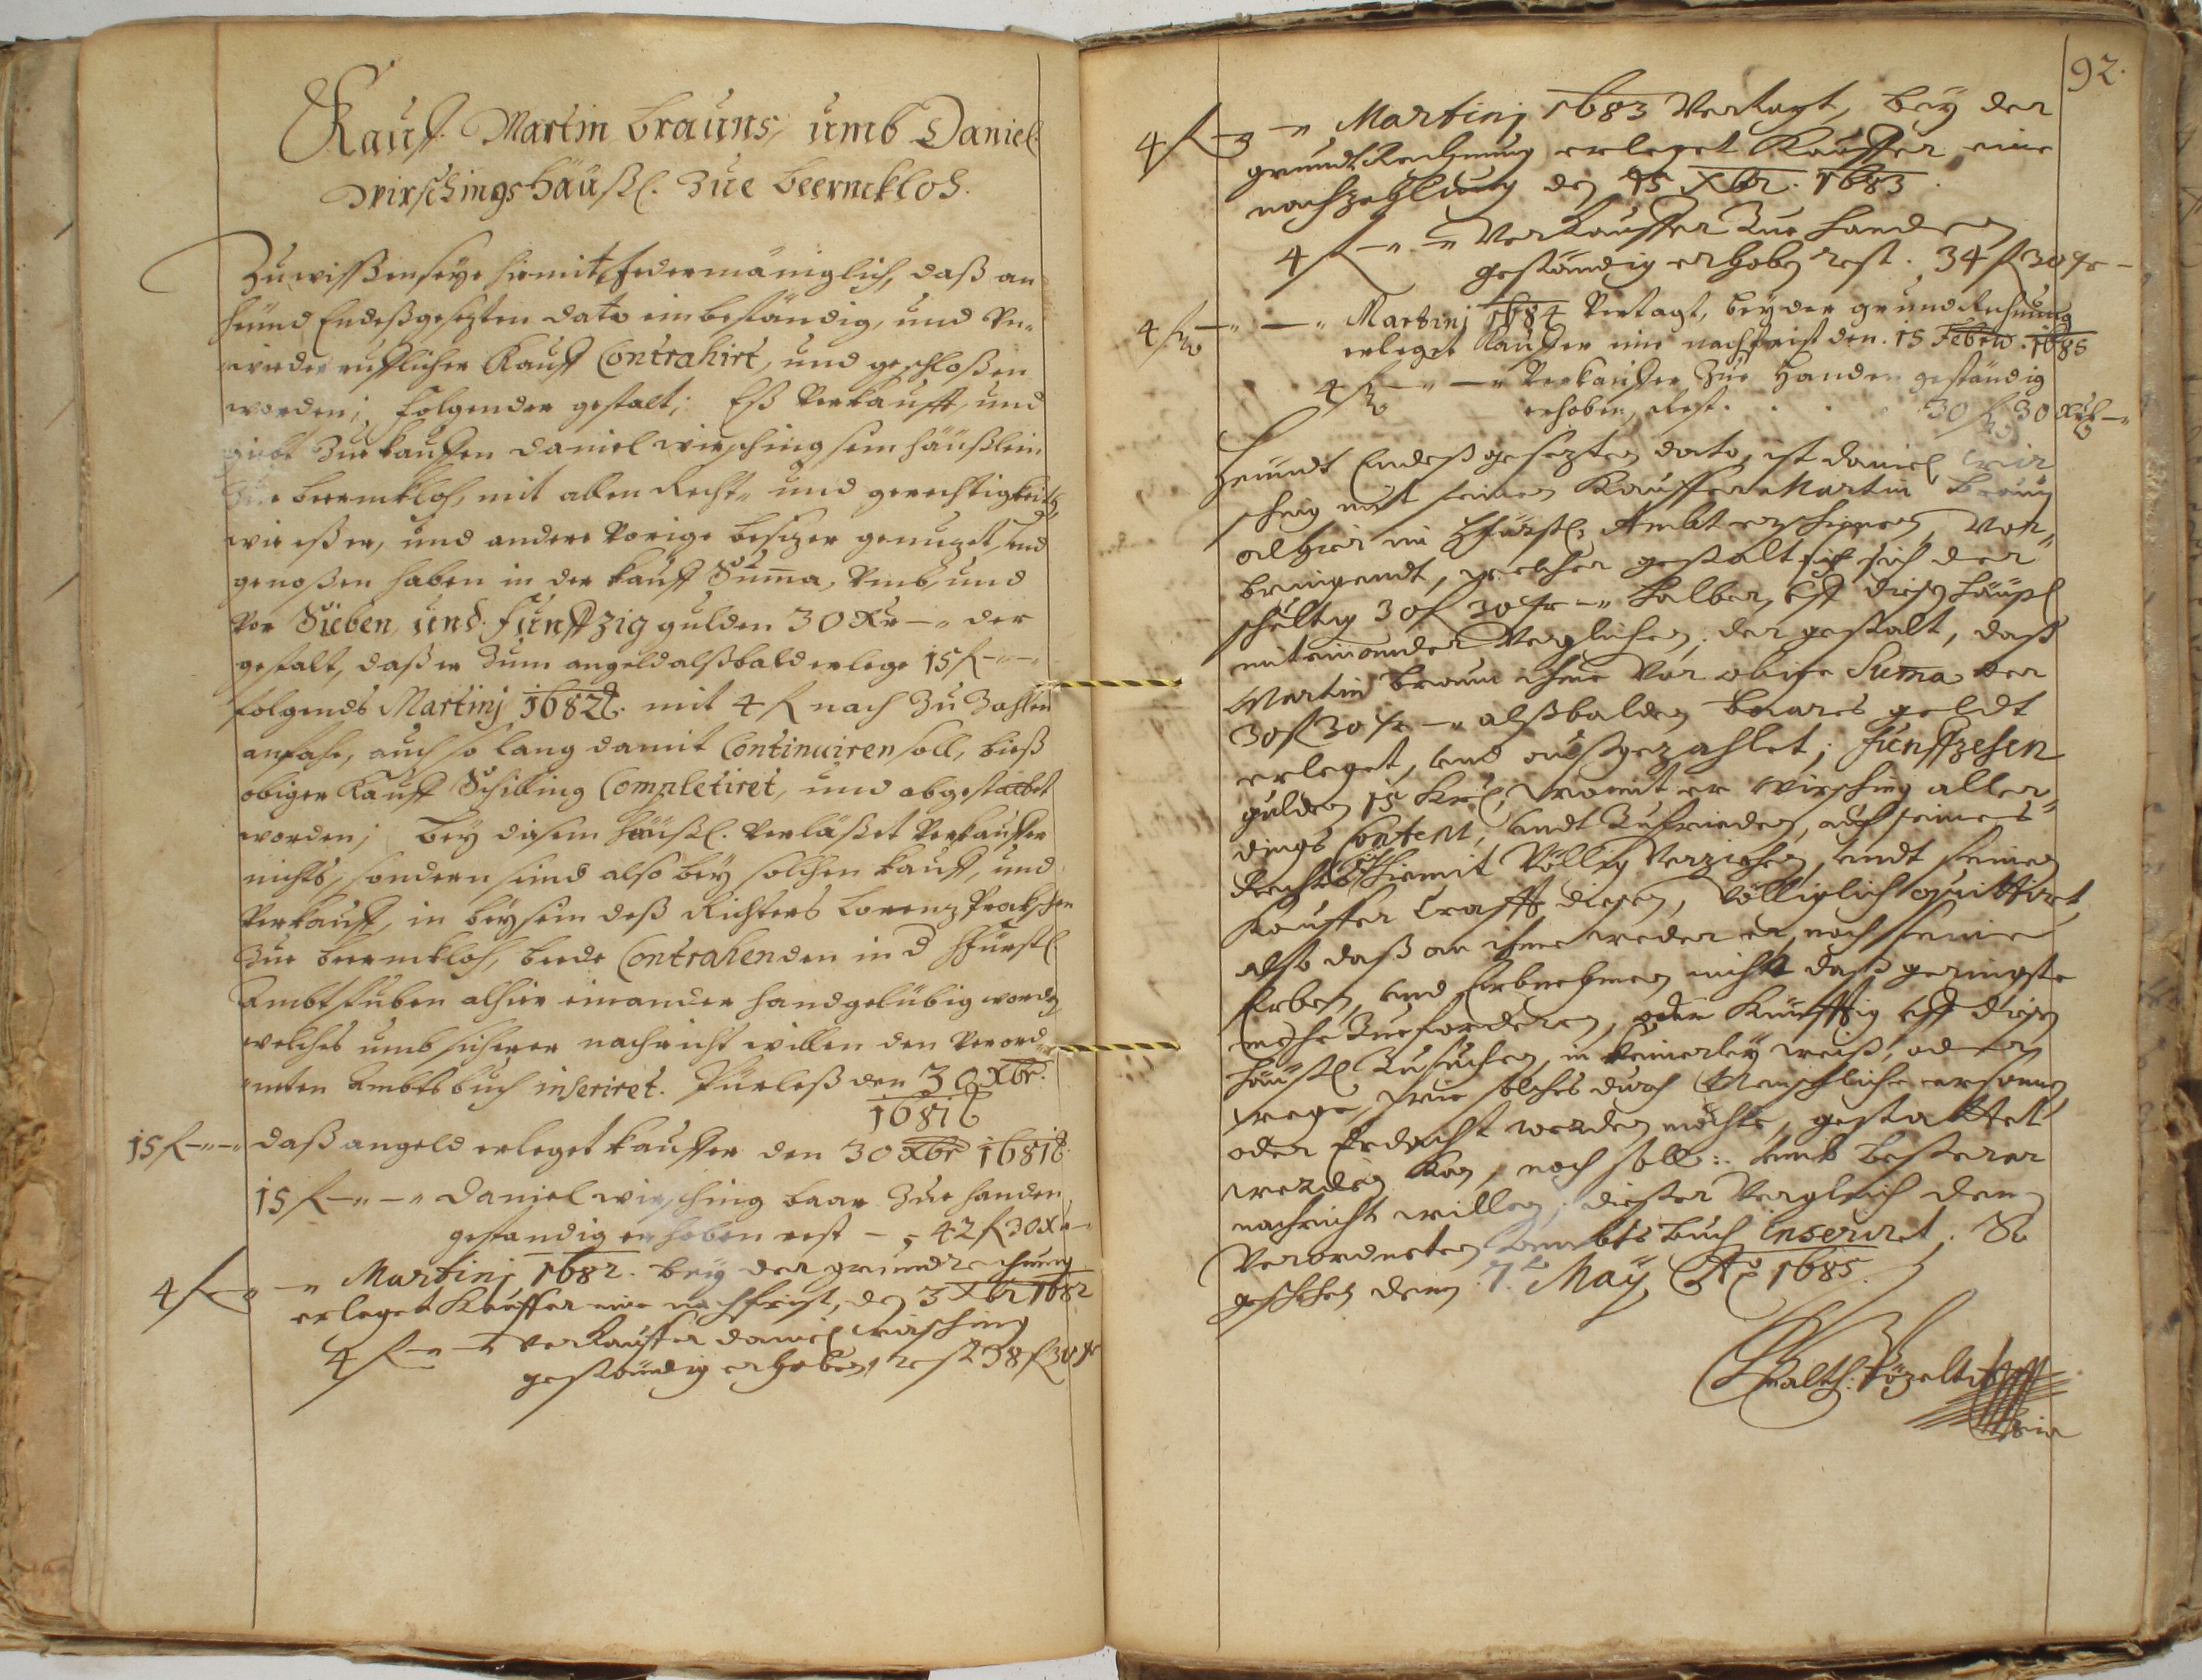 Kauff Martin Brauns, umb Daniel
Wirschings Häußl. Zue Beerneckloh.
Zu wissen seye hiermit Jedermäniglich, daß an
heünd Endeßgesezten dato ein beständig, und Un-
wiederrufflicher Kauff Contrahirt, und geschloßen
worden; folgender gestalt; Eß Verkaufft, und
giebt Zue kauffen Daniel Wirsching sein häußlein
Zue Beerneckloh, mit allen Recht- und gerechtigkeiten
wie eß er, und andere Vorige besizer genuzet, und
genoßen haben in der kauff Suma, Umb, und
Vor Sieben und Funffzig gulden 30 Xr -" der
gestalt, daß er Zum angeld alßbald erlege 15 f -"-"
folgends Martinj 1682 mit 4 f nach Zu Zahlen
anfahe, auch so lang damit Continuiren soll, bieß
obiger Kauff Schilling Completiret, und abgestattet
worden; Bey disem häußl. Verläßet Verkauffer
nichts, sondern seind also bey solchen kauff, und
Verkauff, in beysein deß Richters Lorenz
Zue Beerneckloh, beede Contrahenden in d hFürstl
Ambtstuben alhier einander handgelübig worden
welches umb sicherer nachricht willen den Verord-
neten Ambtsbuch inseriret. den 30 Xbr.
1681
15 f -"-" daß angeld erleget kauffer den 30 Xbr 1681
15 f -"-" Daniel Wirsching baar Zue handen
gestandig erhoben rest - 42 f 30 X
4 f -" -" Martinj 1682. bey der grundrechnung
erleget Kauffer eine nachfrist, den 3 Xbr 1682
4 f -" -" Verkauffer Daniel Wirsching
geständig erhoben, rest 38 f 30 Xr
92.
4 f -" -" Martinj 1683 Vertagt, bey der
grundt Rechnung erleget Kauffer eine
nachzahlung den 15 Xbr. 1683.
4 f -" -" Verkauffer Zue handen
geständig erhoben rest. 34 f 30 Xr -
4 f -" -" Martinj 1684 Vertagt, bey der grund Rechnung
erleget Kauffer eine nachfrist den. 15 Febru. 1685
4 f -" -" Verkauffer Zue Handen geständig
erhoben, Rest. . . . . 30 f 30 Xr -"
Heundt Endeß gesezten dato, ist Daniel Wir
sching mit seinen Kauffer Martin Braun
alhier im hFürstl. Ambt erschienen, Vor-
bringendt, welcher gestalt sie sich der
schultig 30 f 30 Xr -" halber, uff disen häußl
miteinander Verglichen; der gestalt, daß
Martin Braun ihme Vor obige Suma der
30 f 30 Xr -" alßbalden baares geldt
erleget, und außgezahlet; Funffzehen
gulden 15 Xr, womit er Wirsching aller-
dings Content, undt Zufrieden, auch seines
Rechts hiemit Völlig Verziehen, undt seinen
Kauffer Crafft dieses, Völliglich quittiret,
also daß an ihme weder er, noch seine
Erben, und Erbnehmen nichts daß geringste
mehr Zue forderen, oder künfftig uff disen
häußl Zu suchen, in keinerley weiß, oder
wege, wie solches durch Menschliche ersonnen
oder Erdacht werden möchte, gestattet
werden kan, noch soll: umb beßerer
nachricht willen, dießer Vergleich dem
Verordneten Ambts Buch inseriret. So
geschehen dem 7. May Ao 1685.